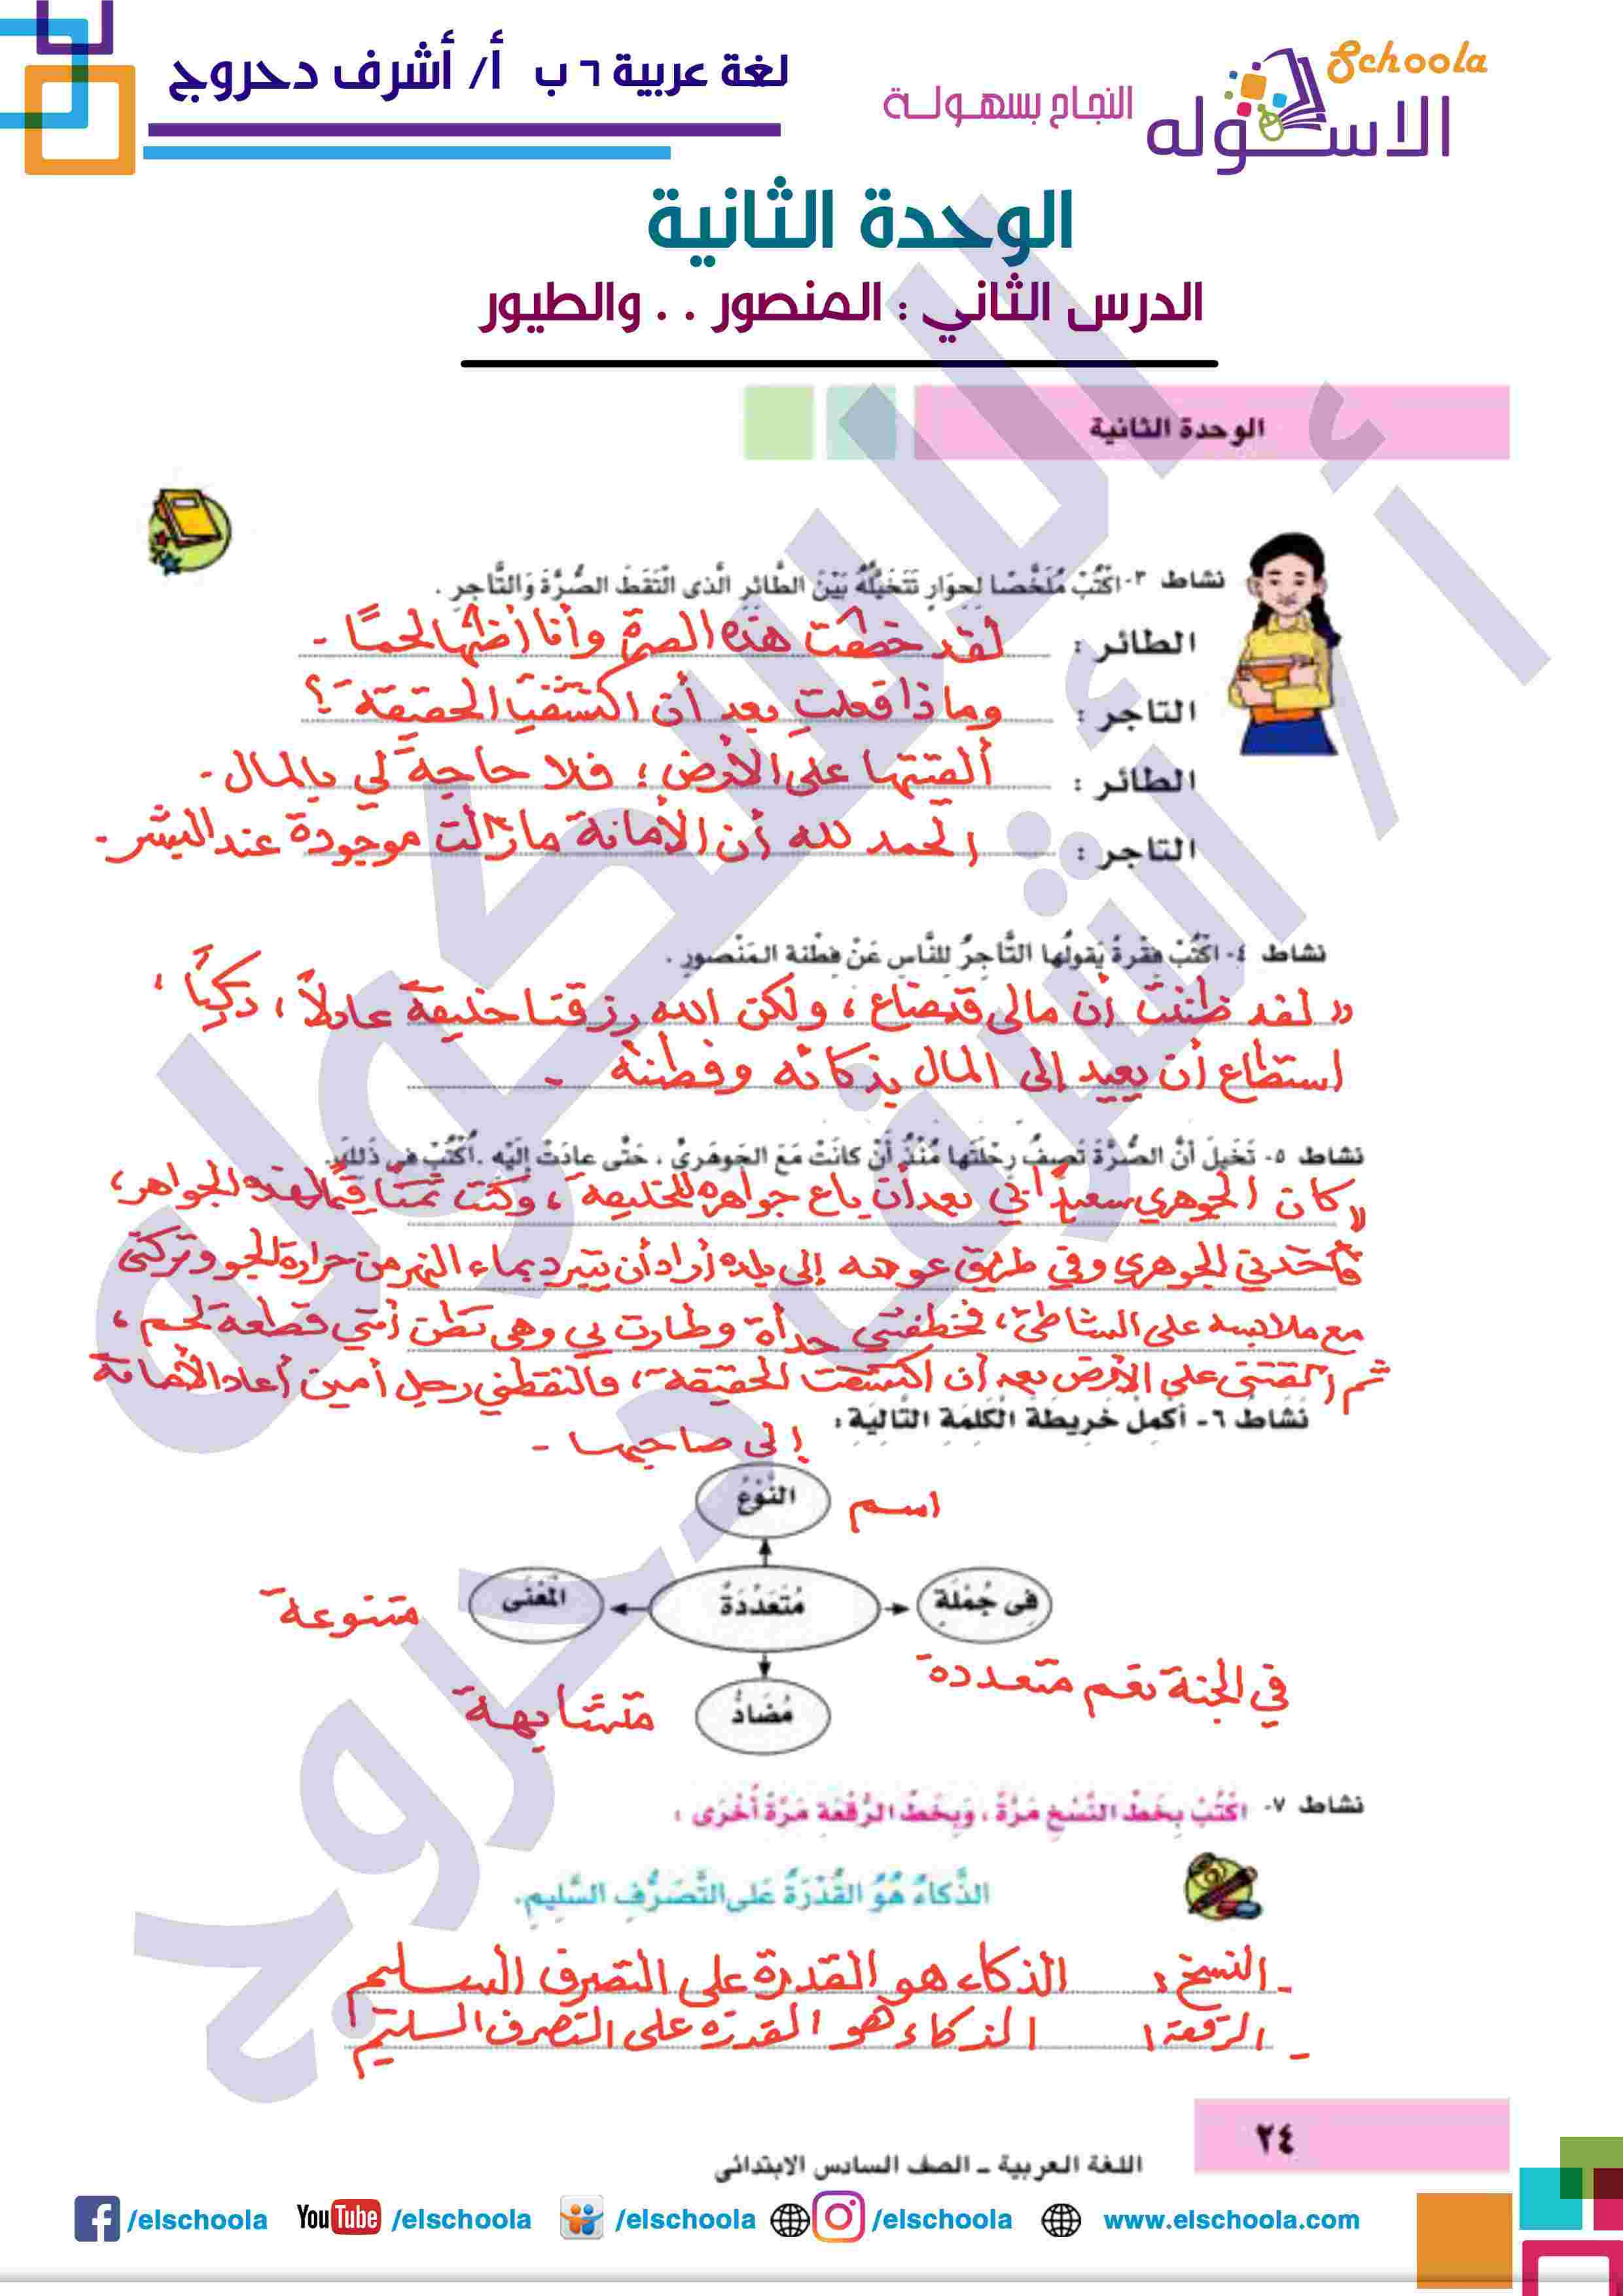 لغة عربية ٦ ب أ/ أشرف دحروج
Schoola
الاسكوله
النجاح بسهولة
الوحدة الثانية
الدرس الثاني : المنصور . . والطيور
الوحدة الثانية
نشاط ٣- اكْتُبْ مُلَخَّصًا لِحِوَارٍ تَتَخَيَّلُهُ بَيْنَ الطَّائِرِ الَّذى الْتَقَطَ الصُّرَّةَ وَالتَّاجِرِ .
الطائر : لقد خطفت هذه الصرة وأنا أظنها لحمًا .
التاجر : وماذا فعلت بعد أن اكتشفت الحقيقة ؟
الطائر : ألقيتها على الأرض ؛ فلا حاجة لي بالمال .
التاجر : الحمد لله أن الأمانة مازالت موجودة عند البشر .
نشاط ٤- اكْتُبْ فِقْرةً يَقولُها التَّاجِرُ للنَّاسِ عَنْ فِطْنة المَنْصورِ .
« لقد ظننت أن مالى قد ضاع ، ولكن الله رزقنا خليفة عادلاً ، ذكيًا ،
استطاع أن يعيد إلى المال بذكائه وفطنته .
نشاط ٥- تَخَيلْ أنَّ الصُّرَّةَ تَصِفُ رِحْلَتَها مُنْذُ أنْ كانَتْ مَعَ الجَوهَرىِّ ، حَتَّى عادَتْ إلَيْهِ . اُكْتُبْ فى ذَلِكَ.
كان الجوهري سعيدًا بي بعد أن باع جواهره للخليفة ، وكنت ثمنًا قيمًا لهذه الجواهر ،
فأخذني الجوهري وفي طريق عودته إلى بلده أراد أن يتبرد بماء النهر من حرارة الجو وتركنى
مع ملابسه على الشاطئ ، فخطفتني حدأة وطارت بي وهى تظن أنني قطعة لحم ،
ثم ألقتنى على الأرض بعد أن اكتشفت الحقيقة ، والتقطني رجل أمين أعاد الأمانة
إلى صاحبها .
نَشَاطُ ٦- أكْمِلْ خَرِيطَةَ الْكَلِمَةِ التَّالِيَةِ :
النَّوْعُ
اسم
فِى جُمْلَةِ
مُتَعَدِّدَةٌ
الْمَعْنَى
متنوعة
في الجنة نعم متعددة
مُضَادُّ
متشابهة
نشاط ٧- اكْتُبْ بِخَطِّ النَّسْخِ مَرَّةً ، وَبِخَطِّ الرُّقْعَةِ مَرَّةً أُخْرَى :
الذَّكاءُ هُوَ القُدْرَةُ عَلى التَّصَرُّفِ السَّلِيمِ.
- النسخ : الذكاء هو القدرة على التصرف السليم
- الرقعة : الذكاء هو القدرة على التصرف السليم
٢٤
اللغة العربية ـ الصف السادس الابتدائى
/elschoola YouTube /elschoola /elschoola /elschoola www.elschoola.com